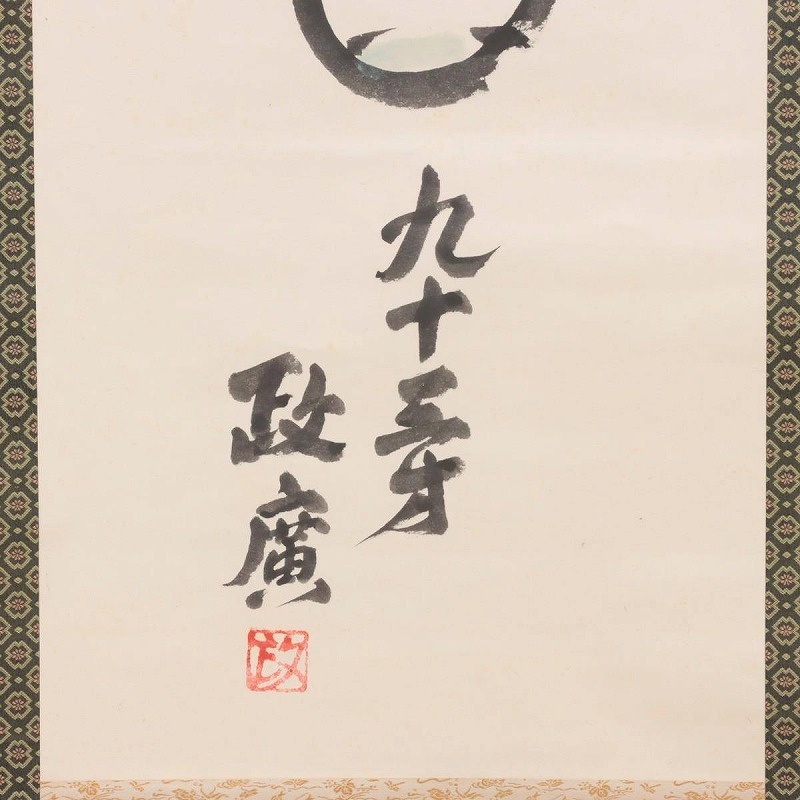 九十三才
政廣
政